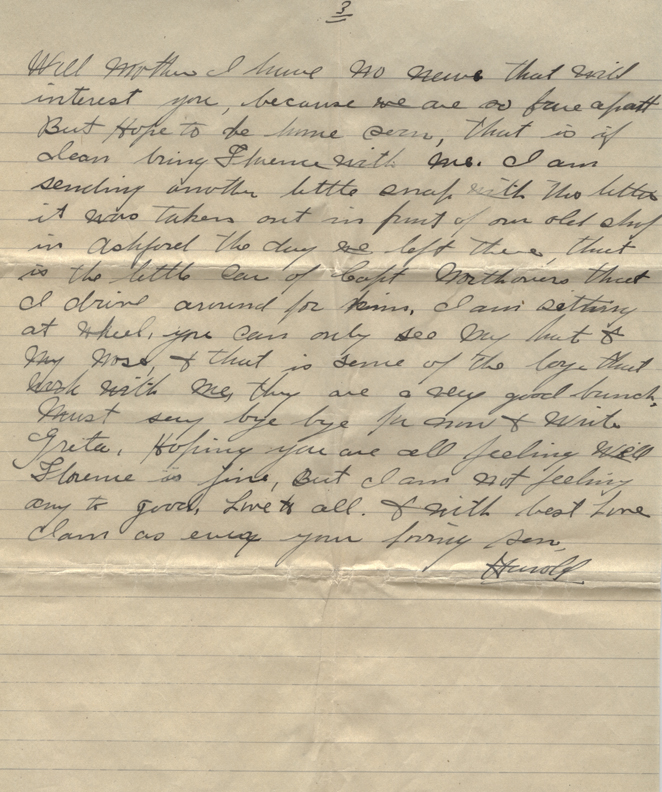 3
Well Mother I have no news that will
interest you, because we are so fare apart
But Hope to be home soon, that is if
I can bring Florence with me. I am
sending another little snap with this letter
it was taken out in front of our old shop
in Ashford the day we left there, that
is the little car of Capt Northovers that
I drive around for him. I am setting
at wheel, you can only see my hat &
my nose, & that is some of the boys that
work with me, they are a very good bunch.
Must say bye bye for now & write
Greta. Hoping you are all feeling well
Florence is fine, But I am not feeling
any to good, Love to all. & with best Love
I am as ever your loving son,
Harold